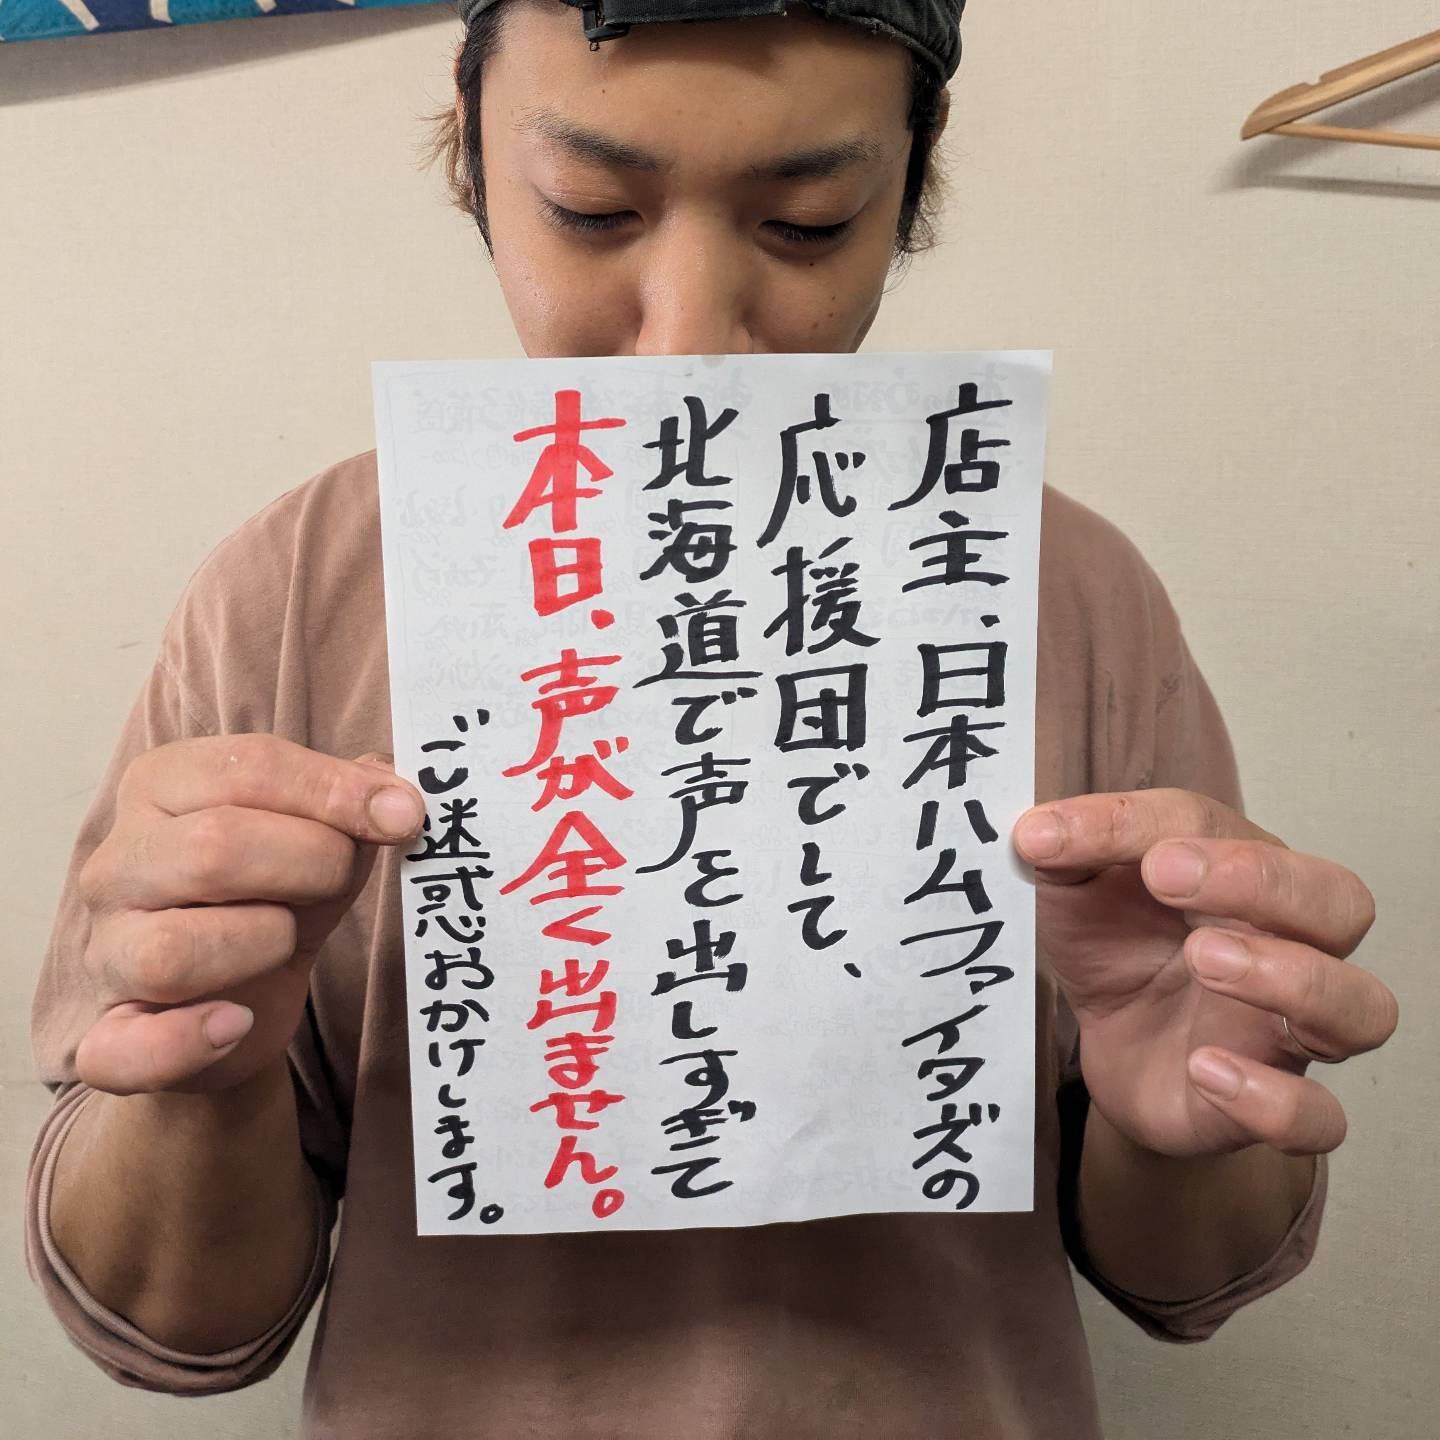 店主、日本ハムファイターズの
応援団でして、
北海道で声を出しすぎて
本日、声が全く出ません。
ご迷惑おかけします。